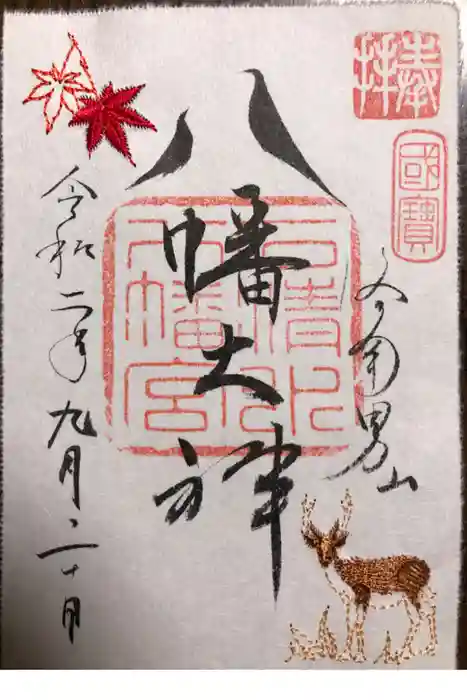 奉拝
國寶
南男山
八幡大神
石清水
八幡宮
令和二年九月二十日